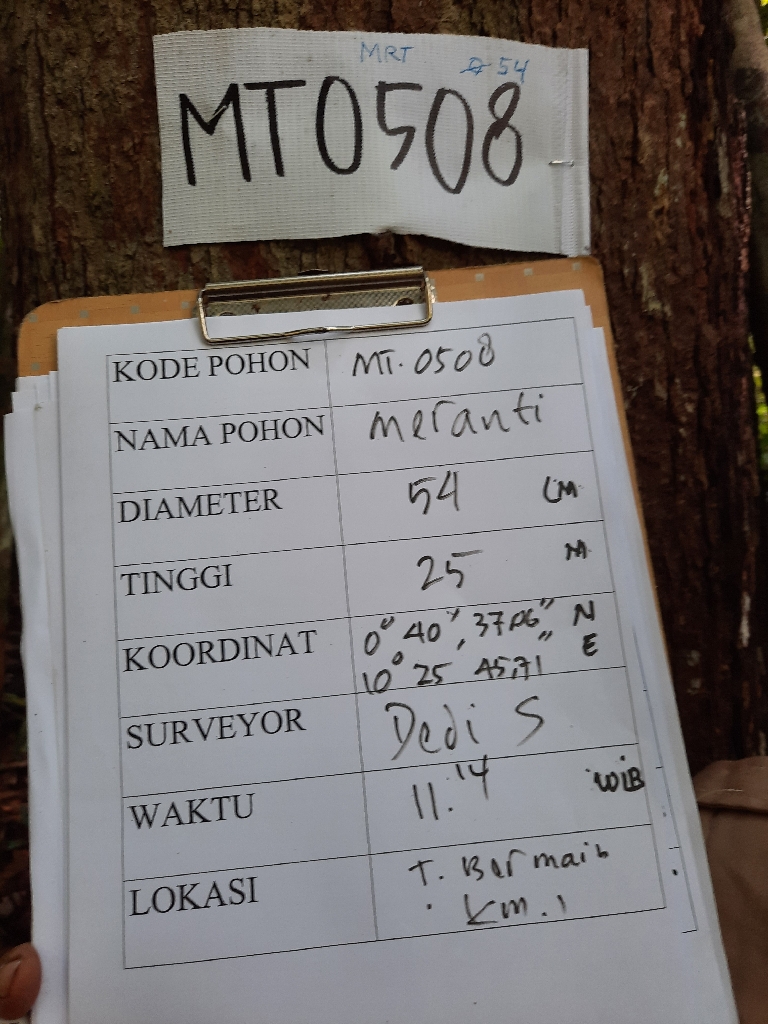 MRT 54
MT0508
KODE POHON MT. 0508
NAMA POHON meranti
DIAMETER 54 CM
TINGGI 25 M
KOORDINAT 0° 40", 37,06" N
10° 25 45,71" E
SURVEYOR Dedi S
WAKTU 11.14 WIB
LOKASI T. Bermain
Km. 1